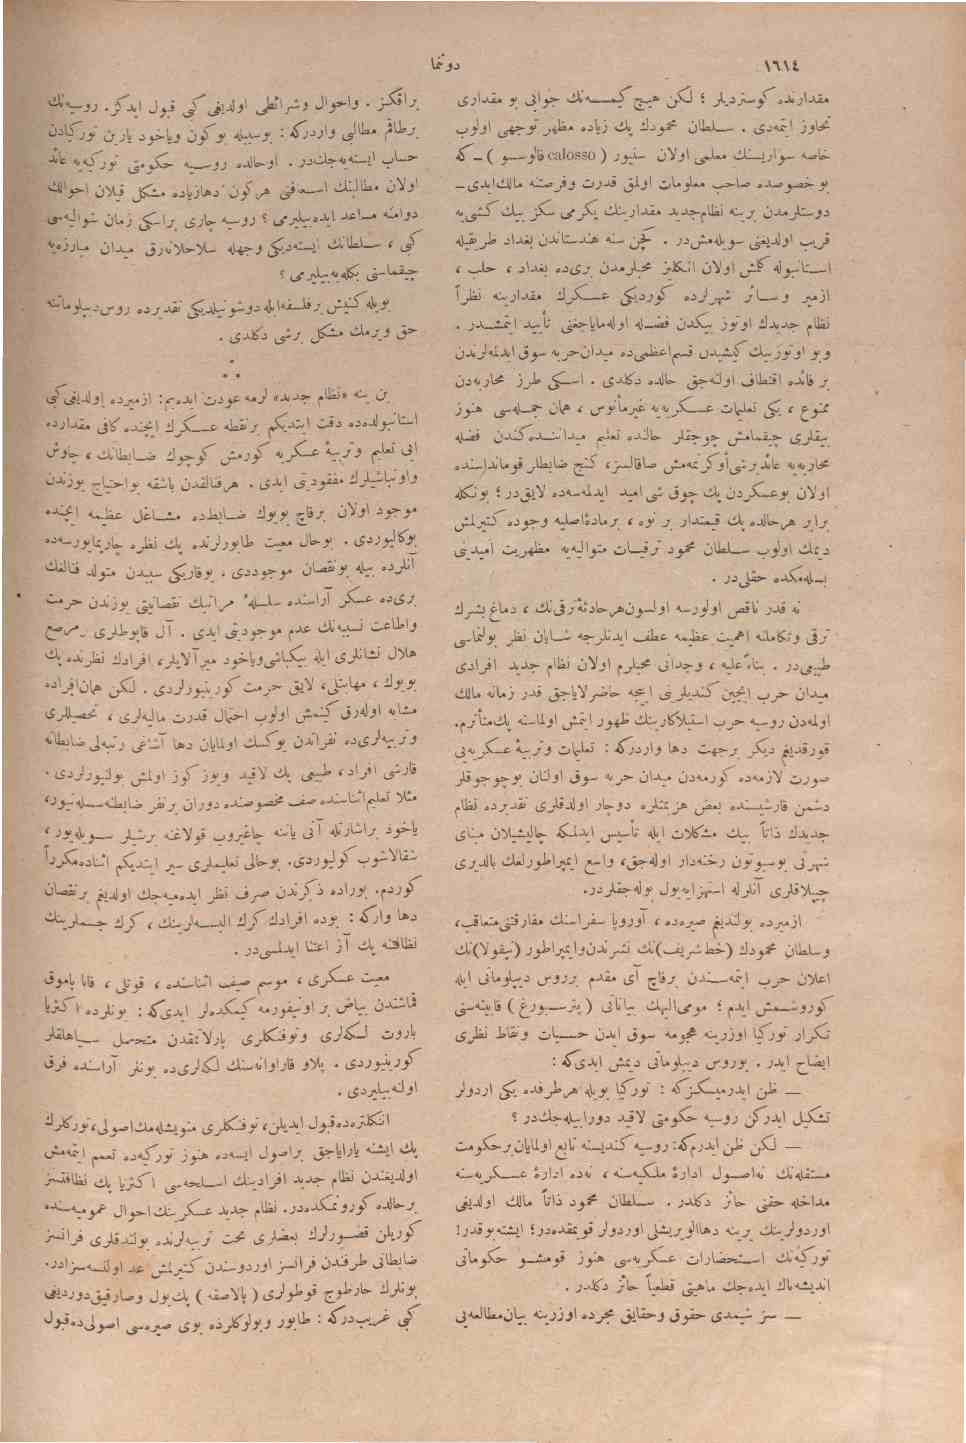 ١٦١٤
دوننما
مقدارنده كوستردیلر ؛ لكن هیچ كیمسه‌نك جوابی بو مقداری
تجاوز ایتمه‌دی . سلطان محمودك پك زیاده مظهر توجهی اولوب
خاصه سواریسنك معلمی اولان سنیور ( calosso قالوسو ) ـ كه
بو خصوصده صاحب معلومات اولمق قدرت و فرصتنه مالك ایدی ـ
دوستلرمدن برینه نظام جدید مقدارینك یكرمی سكز بیك كشی‌یه
قریب اولدیغنی سویله‌مش‌در . كچن سنه هندستاندن بغداد طریقیله
استانبوله كلمش اولان انكلیز محبلرمدن بری‌ده بغداد ، حلب ،
ازمیر و سائر شهرلرده كوردیكی عسكرك مقدارینه نظراً
نظام جدیدك اوتوز بیكدن فضله اوله‌مایاجغنی تأیید ایتمشدر .
و بو اوتوز بیك كیشیدن قسم اعظمی‌ده میدان حربه سوق ایدلمه‌لرندن
بر فائده اقتطاف اولنه‌جق حالده دكلدی . اسكی طرز محاربه‌دن
ممنوع ، یكی تعلیمات عسكریه‌یه غیرمأنوس ، همان جمله‌سی هنوز
بیقلری چیقمامش چوجقلر حالنده تعلیم میداننده‌كندن فضله
محاربه‌یه عائد برشی اوكرنمه‌مش صاقالسز ، كنج ضابطلر قومانداسنده
اولان بو عسكردن پك چوق شی امید ایدلمه‌سه‌ده لایق‌در ؛ بونكله
برابر هر حالده پك قیمتدار بر نوه ، بر مادۀ اصلیه وجوده كتیرلمش
دیمك اولوب سلطان محمود ترقیات متوالیه‌یه مظهریت امیدینی
بسله‌مكده حقلی‌در .
نه قدر ناقص اولورسه اولسون هر حادثۀ ترقی‌نك ، دماغ بشرك
ترقی و تكاملنه اهمیت عظیمه عطف ایدنلرجه شایان نظر بولنماسی
طبیعی‌در . بناءً علیه ، وجدانی محبلرم اولان نظام جدید افرادی
میدان حرب ایچین كندیلرنی ایجه حاضرلایاجق قدر زمانه مالك
اولمه‌دن روسیه حرب استیلاكارینك ظهور ایتمش اولماسنه پك متأثرم.
قورقدیغم دیكر برجهت دها واردركه : تعلیمات و تربیۀ عسكریه‌یی
صورت لازمه‌ده كورمه‌دن میدان حربه سوق اولنان بو چوجوقلر
دشمن قارشیسنده بعض هزیمتلره دوچار اولدقلری تقدیرده نظام
جدیدك ذاتاً بیك مشكلات ایله تأسیس ایدلمكه چالیشیلان مبنای
شهرتی بوسبوتون رخنه‌دار اوله‌جق، واسع ایمپراطورلغك بالدیری
چیپلاقلری آنلرله استهزایه یول بوله‌جقلردر.
ازمیرده بولندیغم صیره‌ده ، آوروپا سفراسنك مفارقتنی متعاقب،
و سلطان محمودك (خط شریف)نك نشرندن و ایمپراطور (نیقولا)نك
اعلان حرب ایتمه‌سندن برقاچ آی مقدم بر روس دیپلوماتی ایله
كوروشمش ایدم ؛ مومی‌الیهك بیاناتی ( پترسبورغ ) قابینه‌سنی
تكرار توركیا اوزرینه هجومه سوق ایدن حسیات و نقاط نظری
ایضاح ایدر . بو روس دیپلوماتی دیمش ایدی كه :
— ظن ایدرمیسكزكه : توركیا بویله هر طرفده یكی اردولر
تشكیل ایدركن روسیه حكومتی لاقید دورابیله‌جك‌در ؟
— لكن ظن ایدرم‌كه: روسیه كندیسنه تابع اولمایان بر حكومت
مستقله‌نك نه اصول ادارۀ ملكیه‌سنه ، نه‌ده ادارۀ عسكریه‌سنه
مداخله حقنی حائز دكلدر . سلطان محمود ذاتاً مالك اولدیغی
اوردولرینك یرینه دها الویریشلی اوردولر قویمقده‌در؛ ایشته بوقدر!
توركیه‌نك استحضارات عسكریه‌سی هنوز قومشو حكوماتی
اندیشه‌ناك ایده‌جك ماهیتی قطعیاً حائز دكلدر .
— سز شیمدی حقوق و حقایق مجرده اوزرینه بیان مطالعه‌یی
براقكز . و احوال و شرائطی اولدیغی كبی قبول ایدكز. روسیه‌نك
برطاقم مطالبی واردركه : بوسبیله بوكون و یاخود یارین توركیادن
حساب ایسته‌یه‌جك‌در . او حالده روسیه حكومتی توركیه‌یه عائد
اولان مطالبنك استیفاسنی هركون دها زیاده مشكل قیلان احوالك
دوامنه مساعد ایده‌بیلیرمی ؟ روسیه چاری براسكی زمان شوالیه‌سی
كبی ، سلطانك ایسته‌دیكی وجهله سلاحلانه‌رق میدان مبارزه‌یه
چیقماسنی بكله‌یه‌بیلیرمی ؟
بویله كنیش بر فلسفه ایله دوشونیلدیكی تقدیرده روس دیپلوماتنه
حق ویرمك مشكل برشی دكلدی .
* *
بن ینه «نظام جدید» لرمه عودت ایده‌یم: ازمیرده اولدیغی كبی
استانبولده‌ده دقت ایتدیكم بر نقطه عسكرك ایچنده كافی مقدارده
ایی تعلیم و تربیۀ عسكریه كورمش كوچوك ضابطانك ، چاوش
و اونباشیلرك مفقودیتی ایدی . هر فنالقدن باشقه بو احتیاج یوزندن
موجود اولان برقاچ بویوك ضابط‌ده مشاغل عظیمه ایچنده
بوكالیوردی . بوحال معیت طابورلرنده پك نظره چارپمایورسه‌ده
آنلرده بیله بو نقصان موجوددی . بوقاریكی سببدن متولد فنالغك
بری‌ده عسكر آراسنده سلسلۀ مراتبك نقصانیتی یوزندن حرمت
و اطاعت نسبیه‌نك عدم موجودیتی ایدی . آل قاپوطلری مرصع
هلال نشانلری ایله بیكباشی و یاخود میرآلایلر، افرادك نظرنده پك
بویوك ، مهابتلی، لایق حرمت كورینیورلردی . لكن همان افراده
مشابه اوله‌رق كینمش اولوب احتمال قدرت مالیه‌لری ، تحصیللری
و تربیه‌لری‌ده نفراتدن یوكسك اولمایان دها آشاغی رتبه‌لی ضابطانه
قارشی افراد، طبیعی پك لاقید و یوز كوز اولمش بولنیورلردی.
مثلا تعلیم اثناسنده صف مخصوصنده دوران بر نفر ضابطنه سسله‌نیور،
یاخود بر اشارتله آنی یاننه چاغیروب قولاغنه برشیلر سویله‌یور ،
شقالاشوب كولیوردی. بوحالی تعلیملری سیر ایتدیكم اثناده مكرراً
كوردم. بوراده ذكرندن صرف نظر ایده‌میه‌جك اولدیغم بر نقصان
دها واركه : بوده افرادك كرك البسه‌لرینك ، كرك جسملرینك
نظافتنه پك آز اعتنا ایدلمسی‌در .
معیت عسكری ، موسم صیف اثناسنده ، قوتلی ، قابا پاموق
قماشندن بیاض بر اونیفورمه كیمكده‌لر ایدی كه : بونلرده اكثریا
باروت لكه‌لری و توفنكلری پارلاتمقدن متحصل سیاهلقلر
كورینیوردی . پلاو قاراوانه‌سنك لكه‌لری‌ده بونلر آراسنده فرق
اولنه‌بیلیردی .
انكلتره‌ده قبول ایدیلن، توفنكلری منویشله‌مك اصولی، توركلرك
پك ایشنه یارایاجق بر اصول ایسه‌ده هنوز توركیه‌ده تعمم ایتمه‌مش
اولدیغندن نظام جدید افرادینك اسلحه‌سی اكثریا پك نظافتسز
بر حالده كورونمكده‌در. نظام جدید عسكرینك احوال عمومیه‌سنده
كوریلن قصورلرك بعضلری تحت تربیه‌لرنده بولندقلری فرانسز
ضابطانی طرفندن فرانسز اوردوسندن كتیرلمش عد اولنسه سزادر.
بونلرك حارطوج قوطولری ( پالاصقه ) پك بول و صارقیق دوردیغی
كبی غریب‌دركه : طابور و بولوكلرده بوی صیره‌سی اصولی‌ده قبول